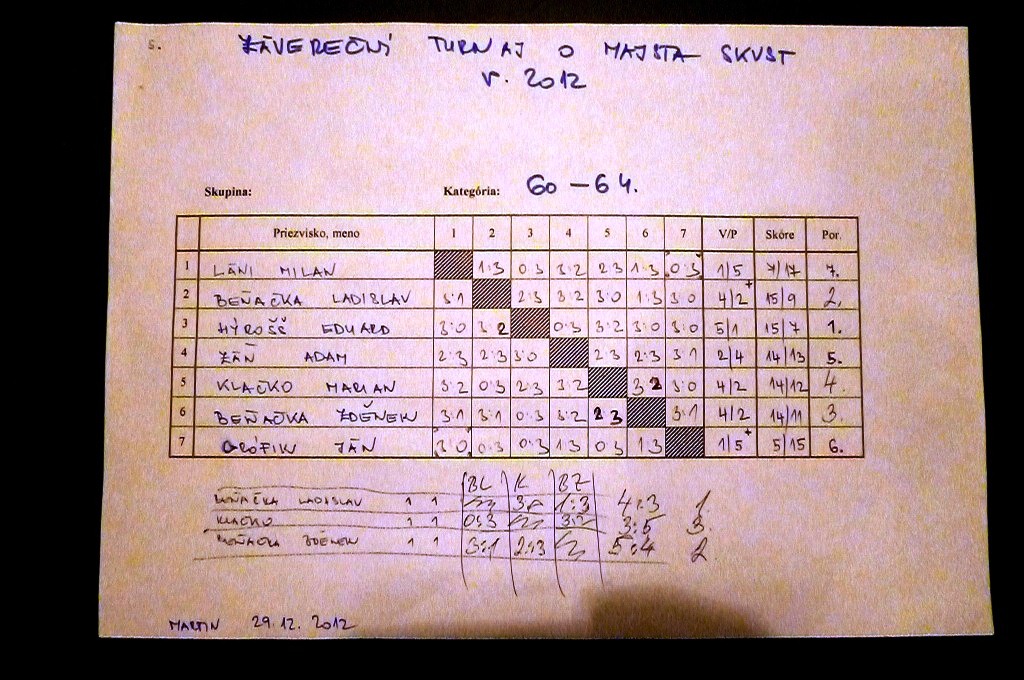 5. ZÁVEREČNÝ TURNAJ O MAJSTA SKVST
V. 2012
Skupina: Kategória: 60 - 64.
Priezvisko, meno 1 2 3 4 5 6 7 V/P Skóre Por.
1 LÁNI MILAN 1:3 0:3 3:2 2:3 1:3 0:3 1/5 7/17 7.
2 BEŇAČKA LADISLAV 3:1 2:3 3:2 3:0 1:3 3:0 4/2+ 15/9 2.
3 HÝROŠŠ EDUARD 3:0 3:2 0:3 3:2 3:0 3:0 5/1 15/7 1.
4 ŽÁŇ ADAM 2:3 2:3 3:0 2:3 2:3 3:1 2/4 14/13 5.
5 KLAČKO MARIAN 3:2 0:3 2:3 3:2 3:2 3:0 4/2 14/12 4.
6 BEŇAČKA ZDENEK 3:1 3:1 0:3 3:2 2:3 3:1 4/2 14/11 3.
7 GRÓFIK JÁN 3:0 0:3 0:3 1:3 0:3 1:3 1/5+ 5/15 6.
BL K BZ
BEŇAČKA LADISLAV 1 1 3:0 1:3 4:3 1
KLAČKO 1 1 0:3 3:2 3:5 3.
BEŇAČKA ZDENEK 1 1 3:1 2:3 5:4 2
MARTIN 29.12.2012